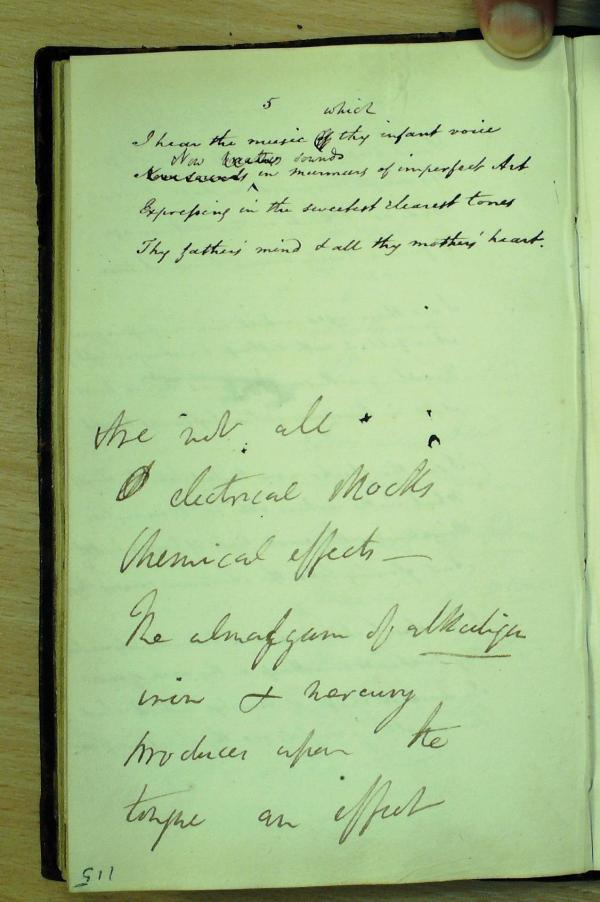 5 which
I hear the music Of thy infant voice
Now breathes sounds
Now sounds in murmurs of imperfect Art
Expressing in the sweetest clearest tones
Thy fathers' mind & all thy mothers' heart.
Are not all
electrical shocks
Chemical effects —
The almalgum of
iron & mercury
produces upon the
tongue an effect
115